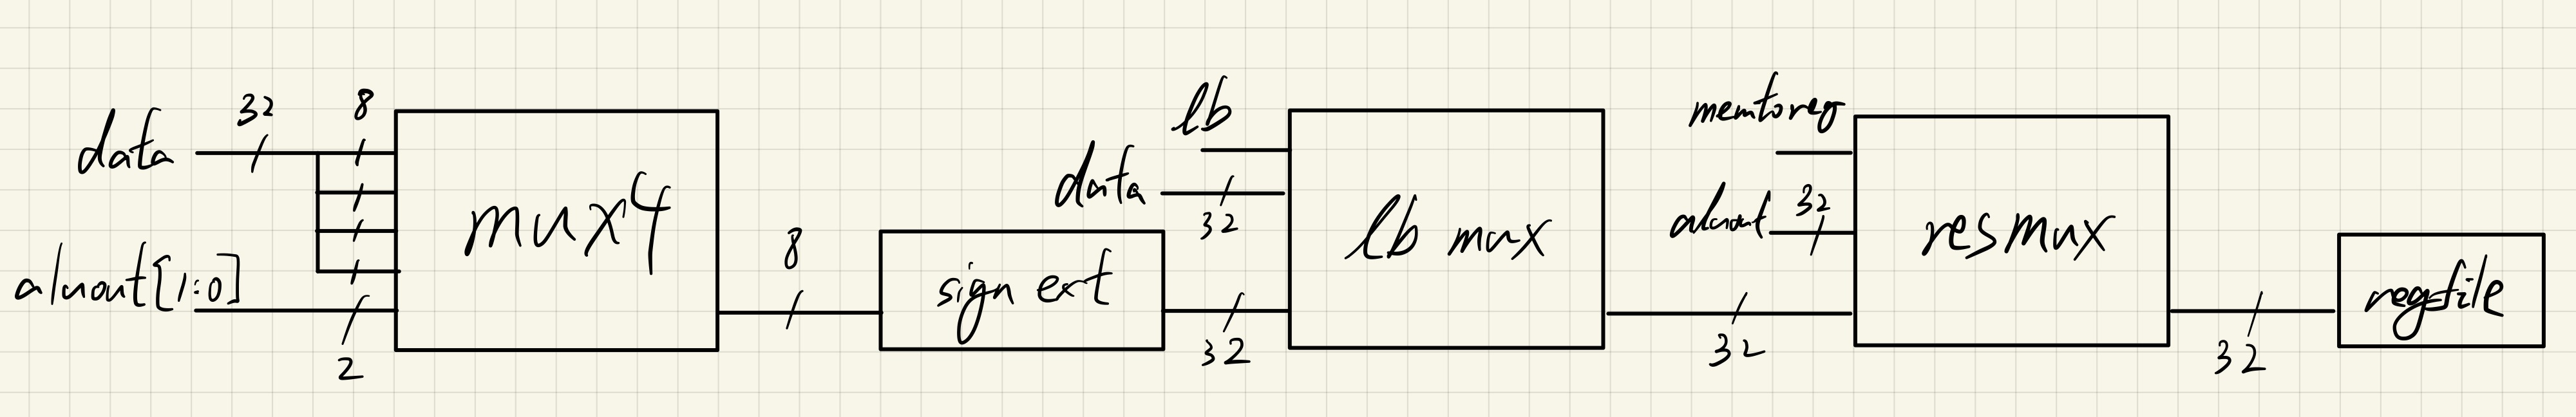 data
32
8
aluout[1:0]
2
mux4
8
sign ext
lb
data
32
32
lb mux
32
memtoreg
aluout
32
resmux
32
regfile